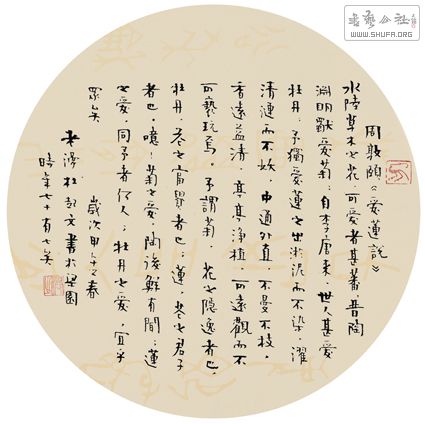 書藝公社
WWW.SHUFA.ORG
周敦頤《愛蓮説》
水陸草木之花，可愛者甚蕃。晋陶
淵明獨愛菊；自李唐来，世人甚愛
牡丹；予獨愛蓮之出淤泥而不染，濯
清漣而不妖，中通外直，不蔓不枝，
香遠益清，亭亭淨植，可遠觀而不
可褻玩焉。予謂菊，花之隐逸者也；
牡丹，花之富貴者也；蓮，花之君子
者也。噫！菊之愛，陶後鮮有聞；蓮
之愛，同予者何人；牡丹之愛，宜乎
眾矣
歲次甲午之春
老 杜 文書於梁園
時年七十有七矣